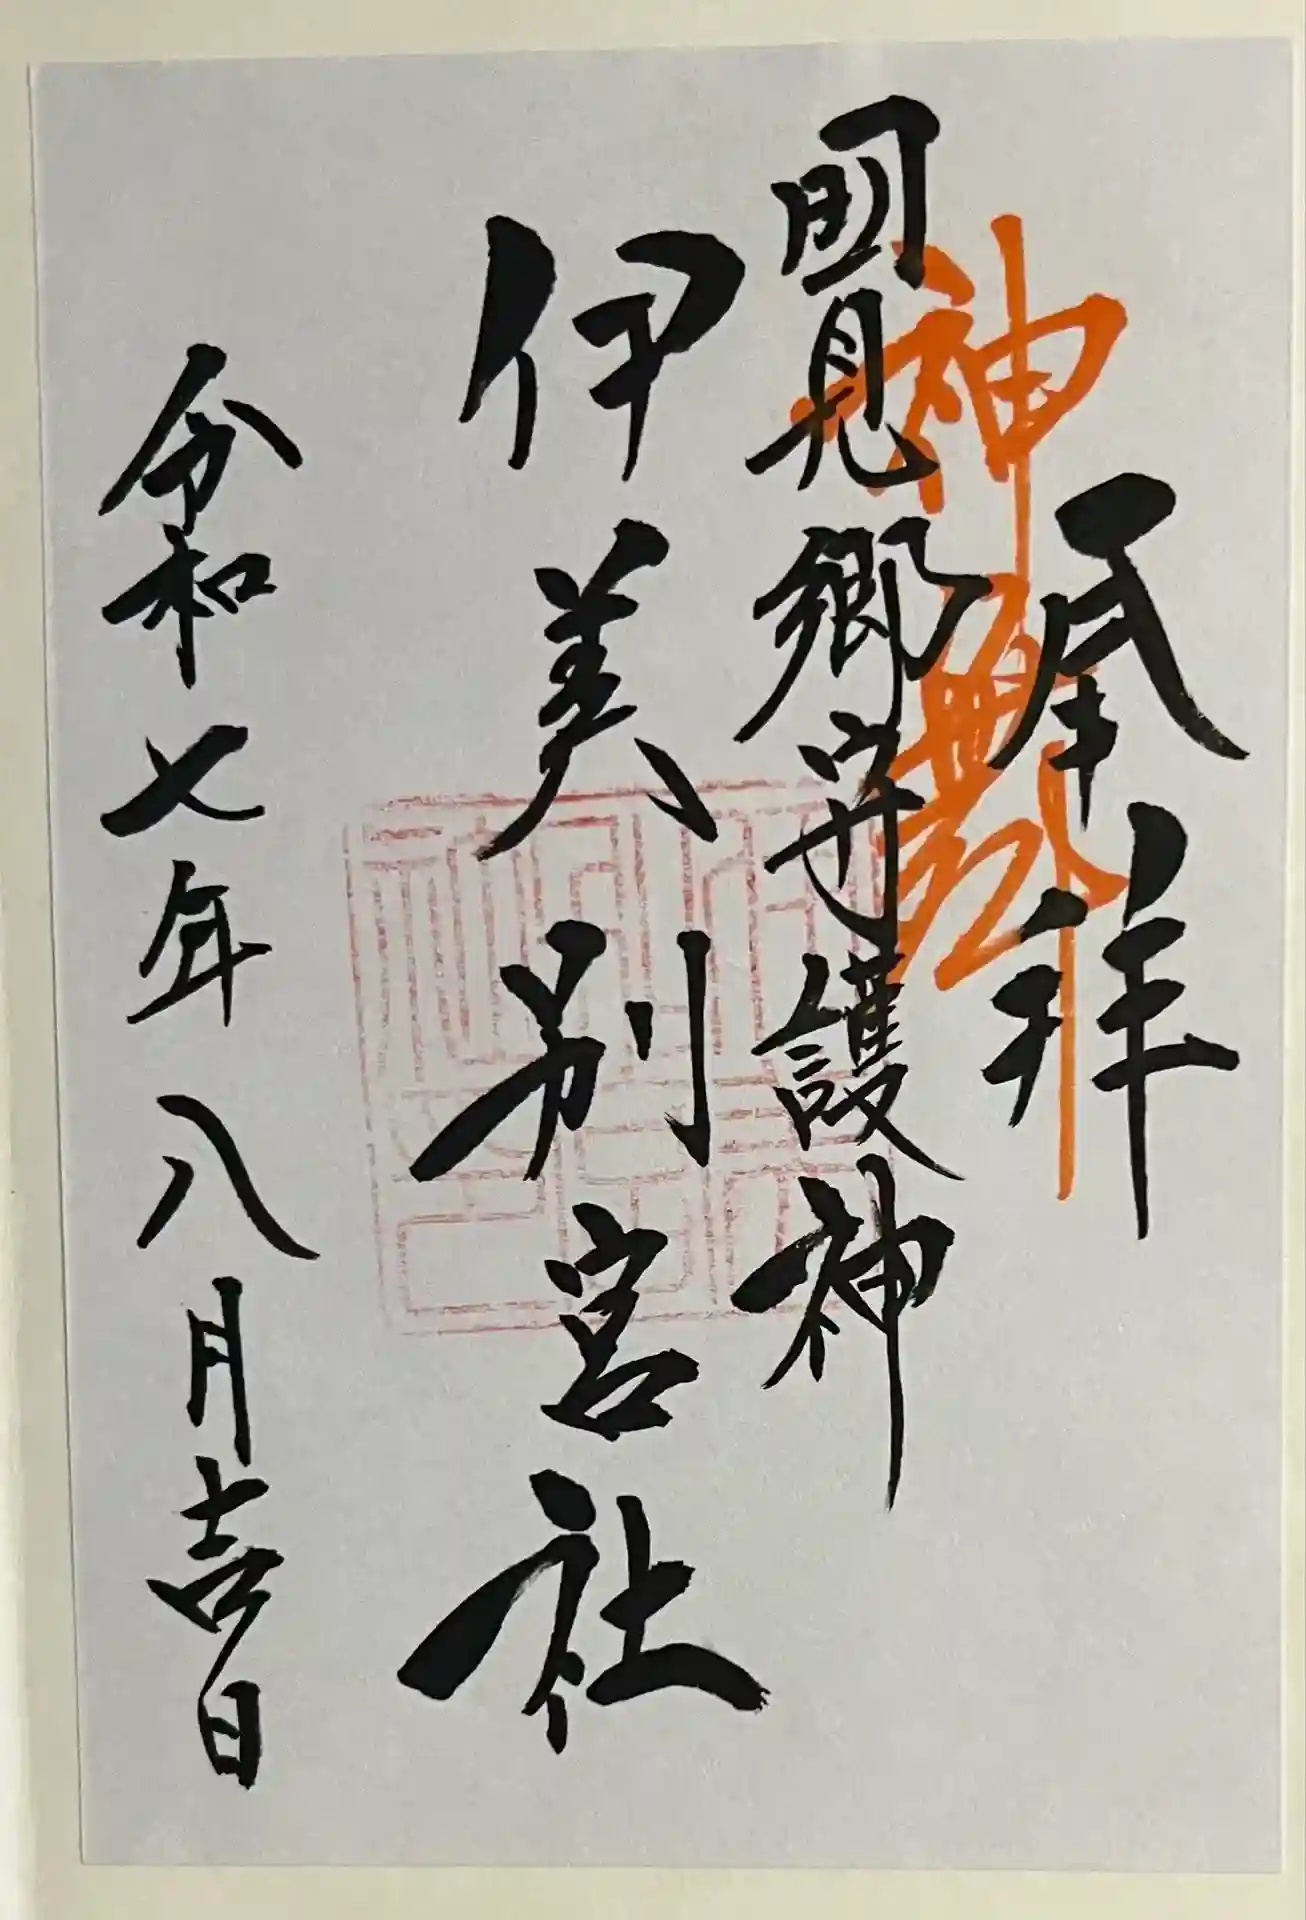 奉拝
神舞
国見郷守護神
伊美別宮社
令和七年八月吉日